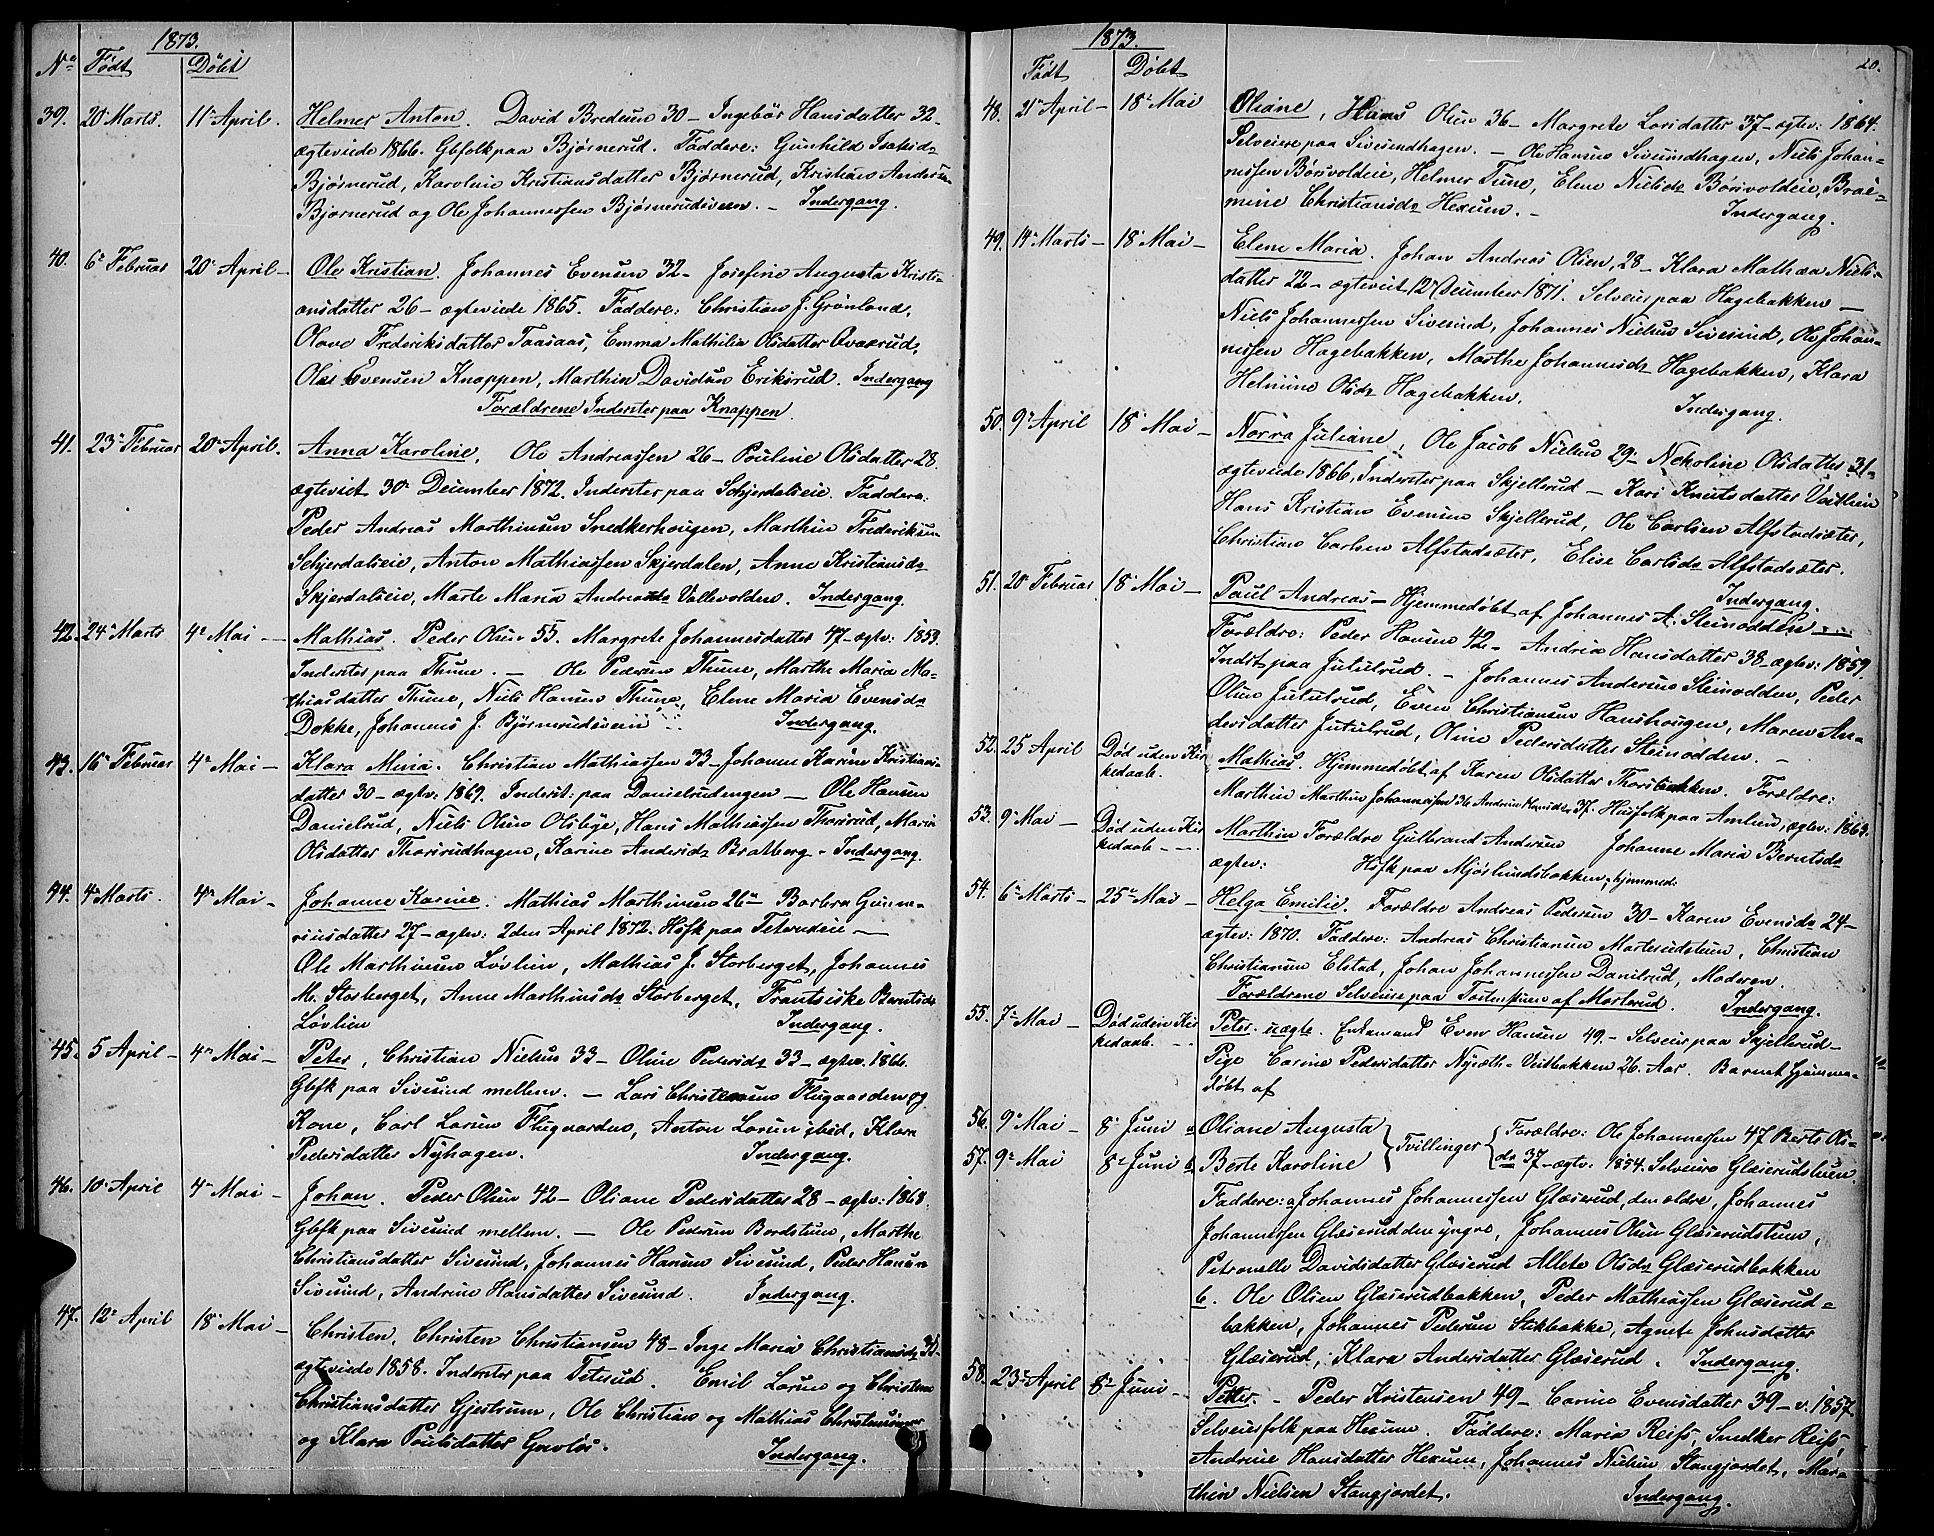 1873.
No Født Døbt
39. 20 Marts. 11 April. Helmer Anton. David Bredesen 30 - Ingebor Hansdatter 32-
ægteviede 1866. Gbfolk paa Bjørnerud. Faddere: Gunhild Isaksd
Bjørnerud, Karoline Kristiansdatter Bjørnerud, Kristian Andersen
Bjørnerud og Ole Johannessen Bjørnerudsveen. - Indergang.
40. 6 Februar 20 April - Ole Kristian. Johannes Evensen 32 - Josefine Augusta Kristi-
ansdatter 26 - ægteviede 1865. Faddere: Christian J. Grønland,
Olave Frederiksdatter Taasaas, Emma Mathilie Olsdatter Qværud,
Ole Evensen Knappen, Marthin Davidsen Eriksrud. Indergang
Forældrene Inderster paa Knappen.
41. 23 Februar 20 April. Anna Karoline. Ole Andreassen 26 - Pouline Olsdatter 28.
ægteviet 30 December 1872. Inderster paa Schjerdalseie. Faddere:
Peder Andreas Marthinsen Snedkerhougen, Marthin Frederiksen
Schjerdalseie, Anton Mathiassen Skjerdalen, Anne Kristiansd
Skjerdalseie, Marte Maria Andreasd Vollevolden. Indergang.
42. 24 Marts 4 Mai - Mathias. Peder Olsen 55. Margrete Johannesdatter 47 - ægtev: 1859.
Inderster paa Thune. - Ole Pedersen Thune, Marthe Maria Ma-
thiasdatter Thune, Niels Hansen Thune, Elene Maria Evensd
Dokke, Johannes J. Bjørnerudsveen. Indergang.
43. 16 Februar 4 Mai - Klara Mina. Christian Mathiassen 33 - Johanne Karine Kristians-
datter 30 - ægtev: 1869. Inderst: paa Danielrudengen - Ole Hansen
Danielrud, Niels Olsen Olsbye, Hans Mathiassen Thorsrud, Maria
Olsdatter Thorsrudhagen, Karine Andersd Bratberg - Indergang.
44. 4 Marts. 4 Mai - Johanne Karine. Mathias Marthinsen 26 - Barbra Gunne-
riusdatter 27 - ægtev: 2den April 1872. Hsfk paa -
Ole Marthinsen Løvlien, Mathias J. Storberget, Johannes
M. Storberget, Anne Marthinsd Storberget, Frantsiske Berntsd
Løvlien Indergang.
45. 5 April - 4 Mai - Peter, Christian Nielsen 33 - Oline Pedersd 33 - ægtev. 1866.
Gbfk paa Sivesind mellem. - Lars Christensen Flugaarden og
Kone, Carl Larsen Flugaarden, Anton Larsen ibid, Klara
Pedersdatter Nyhagen. Indergang.
46. 10 April 4 Mai - Johan. Peder Olsen 42 - Oliane Pedersdatter 28 - ægtev: 1868.
Gbfk paa Sivesind mellem. - Ole Pedersen Bordstuen, Marthe
Christiansdatter Sivesind, Johannes Hansen Sivesind, Peder Hansen
Sivesind, Andrine Hansdatter Sivesind. Indergang.
47. 12 April 18 Mai - Christen, Christen Christiansen 48 - Inge Maria Christiansd
ægteviede 1858. Inderster paa Teterud. Emil Larsen og Christine
Christiansdatter Gjestrum, Ole Christian og Mathias Christensønner
og Klara Poulsdatter Indergang.
1873.
20.
Født Døbt
48. 21 April - 18 Mai Oliane, Hans Olsen 36 - Margrete Larsdatter 37 - ægtev: 1864.
Selveiere paa Sivesindhagen. - Ole Hansen Sivesindhagen, Niels Johan-
nessen Børsvoldeie, Helmer Tune, Elene Nielsd Børsvoldeie, Brae-
mine Christiansd Hexum. - Indergang.
49. 14 Marts - 18 Mai - Elene Maria. Johan Andreas Olsen, 28 - Klara Mathea Niels-
datter 22 - ægteviet 12 December 1871. Selveier paa Hagebakken -
Niels Johannessen Sivesind, Johannes Nielsen Sivesind, Ole Johan-
nessen Hagebakken, Marthe Johannesd Hagebakken, Klara
Helmine Olsd Hagebakken. Indergang.
50. 9 April 18 Mai - Norra Juliane, Ole Jacob Nielsen 29 - Nekoline Olsdatter 31 -
ægteviede 1866, Inderster paa Skjellerud - Kari Knutsdatter Vatlien
Hans Kristian Evensen Skjellerud, Ole Carlsen Alfstadsæter,
Christian Carlsen Alfstadsæter, Elise Carlsd Alfstadsæter.
Indergang.
51. 20 Februar 18 Mai - Paul Andreas - Hjemmedøbt af Johannes A. Steinodden
Forældre: Peder Hansen 42 - Andria Hansdatter 38 - ægtev: 1859.
Indst paa Jutulrud. - Johannes Andersen Steinodden, Peder
Olsen Jutulrud, Even Christiansen Hanshougen, Maren An-
dersdatter Jutulrud, Oline Pedersdatter Steinodden. -
52. 25 April Død uden Kir Mathias. Hjemmedøbt af Karen Olsdatter Thorsbakken. Forældre:
kedaab. Marthin Marthin Johannessen 36 Andrine Hansd 37. Husfolk paa Amlien, ægtev: 1863.
53. 9 Mai - Død uden Kir Marthin Forældre Gulbrand Andersen Johanne Maria Berntsd
kedaab - ægtev: Hsfk paa Mjørlundsbakken, hjemmed:
54. 6 Marts - 25 Mai - Helga Emilie. Forældre Andreas Pedersen 30 - Karen Evensd 24 -
ægtev: 1870. Faddere: Andreas Christiansen Marterudstuen, Christian
Christiansen Elstad, Johan Johannessen Danilrud, Moderen.
Forældrene Selveiere paa af Marterud. Indergang.
55. 7 Mai - Død uden Kir Peter. uægte. Enkemand Even Hansen 49. - Selveier paa Skjellerud -
kedaab. Pige Carine Pedersdatter Nysæth - Veitbakken 26 Aar. Barnet hjemme-
døbt af
56. 9 Mai - 8 Juni a Oliane Augusta } Tvillinger { Forældre: Ole Johannessen 47 Berte Ols-
57. 9 Mai 8 Juni b. Berte Karoline d 37 - ægtv. 1854. Selveiere Glæserudstuen.
Faddere: a Johannes Johannessen Glæserud, den ældre, Johannes
Johannessen Glæserud den yngre, Johannes Olsen Glæserudstuen,
Petronelle Davidsdatter Glæserud Allete Olsd Glæserudbakken
b. Ole Olsen Glæserudbakken, Peder Mathiassen Glæserud-
bakken, Johannes Pedersen Stikbakke, Agnete Johnsdatter
Glæserud, Klara Andersdatter Glæserud. Indergang.
58. 23 April 8 Juni - Petter. - Peder Kristensen 49 - Carine Evensdatter 39 - v. 1857
Selveierfolk paa Hexum. Faddere: Maria Reiss, Snedker Reiss,
Andrine Hansdatter Hexum, Johannes Nielsen Stangjordet, Mar-
thin Nielsen Stangjordet. Indergang.